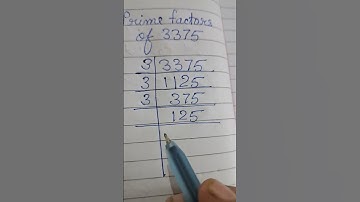 Prime factors
of 3375
3 3375
3 1125
3 375
125